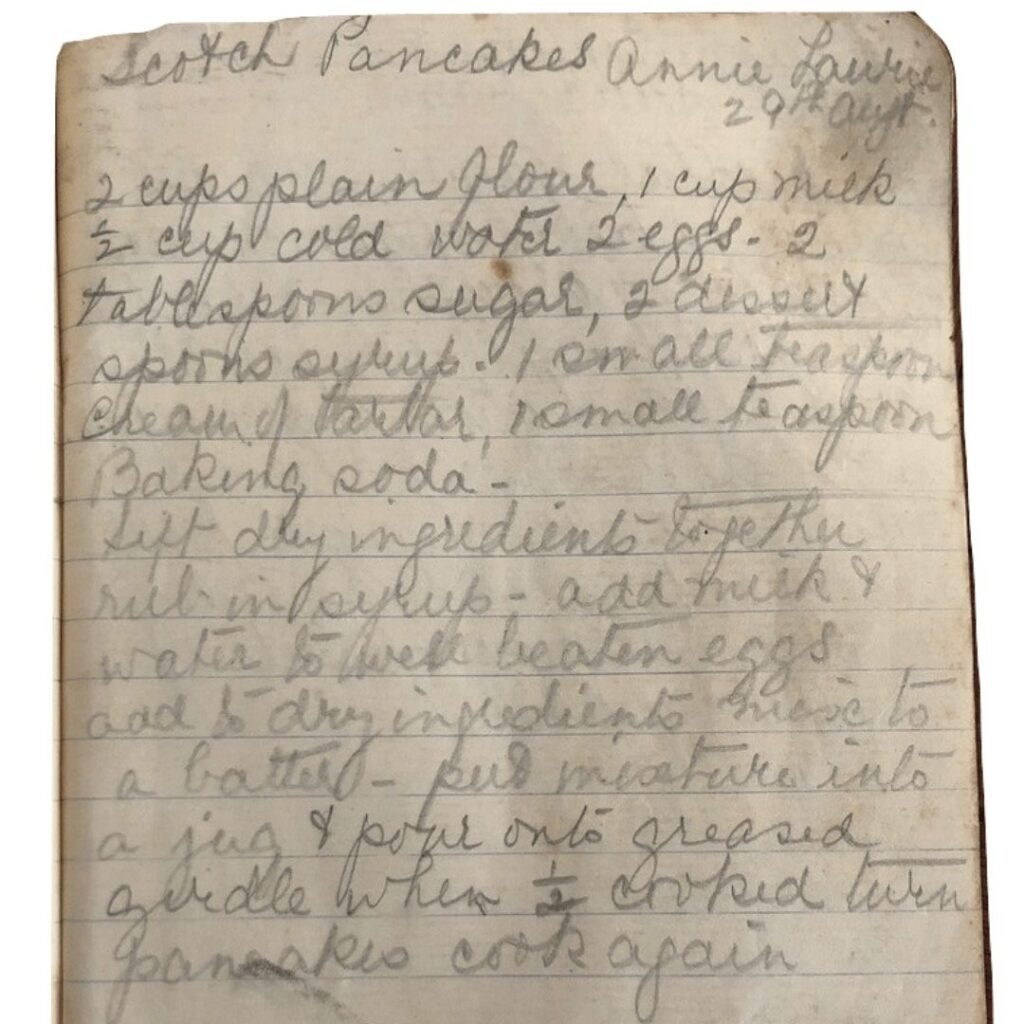 Scotch Pancakes Annie Laurie
29th Augt.
2 cups plain flour, 1 cup milk
½ cup cold water 2 eggs - 2
tablespoons sugar, 2 dessert
spoons syrup. 1 small teaspoon
Cream of tartar, 1 small teaspoon
Baking soda -
Sift dry ingredients together
rub in syrup - add milk &
water to well beaten eggs
add to dry ingredients mix to
a batter - put mixture into
a jug & pour onto greased
girdle when ½ cooked turn
pancakes cook again